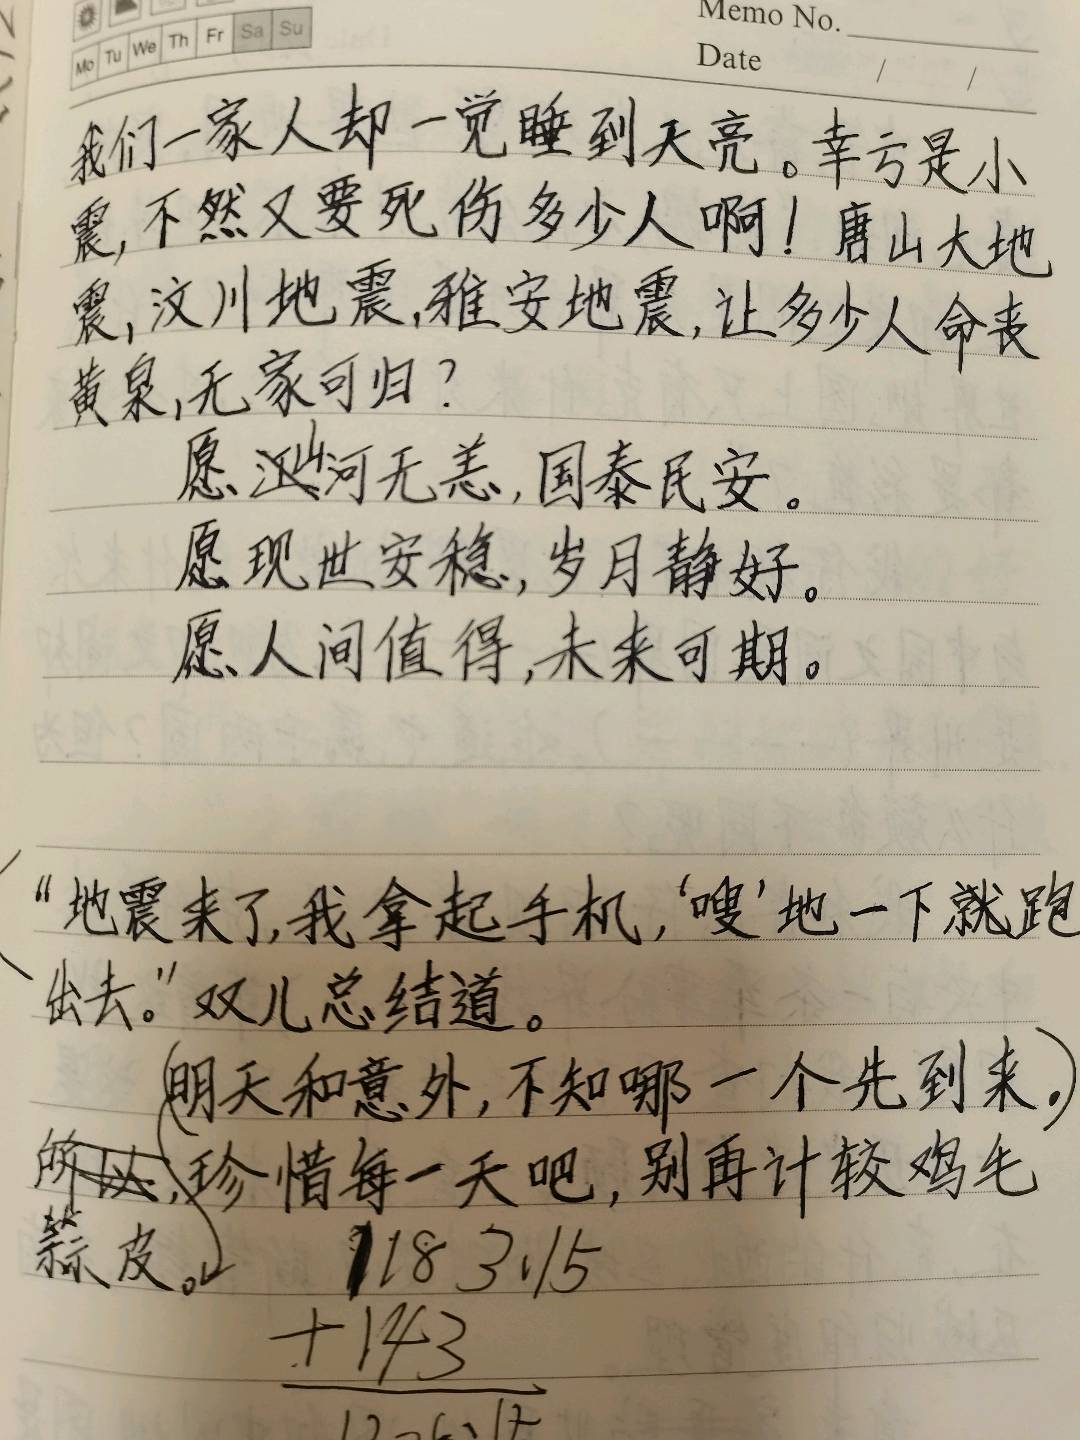 Memo No.
Mo Tu We Th Fr Sa Su
Date / /
我们一家人却一觉睡到天亮。幸亏是小
震,不然又要死伤多少人啊!唐山大地
震,汶川地震,雅安地震,让多少人命丧
黄泉,无家可归?
愿山河无恙,国泰民安。
愿现世安稳,岁月静好。
愿人间值得,未来可期。
“地震来了,我拿起手机,‘嗖’地一下就跑
出去。”双儿总结道。
(明天和意外,不知哪一个先到来.)
所以,珍惜每一天吧,别再计较鸡毛
蒜皮。
1183.15
+143